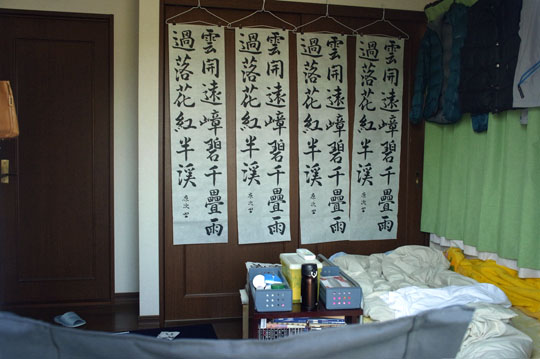 雲開遠嶂碧千疊雨
過落花紅半溪
雲開遠嶂碧千疊雨
過落花紅半溪
雲開遠嶂碧千疊雨
過落花紅半溪
雲開遠嶂碧千疊雨
過落花紅半溪